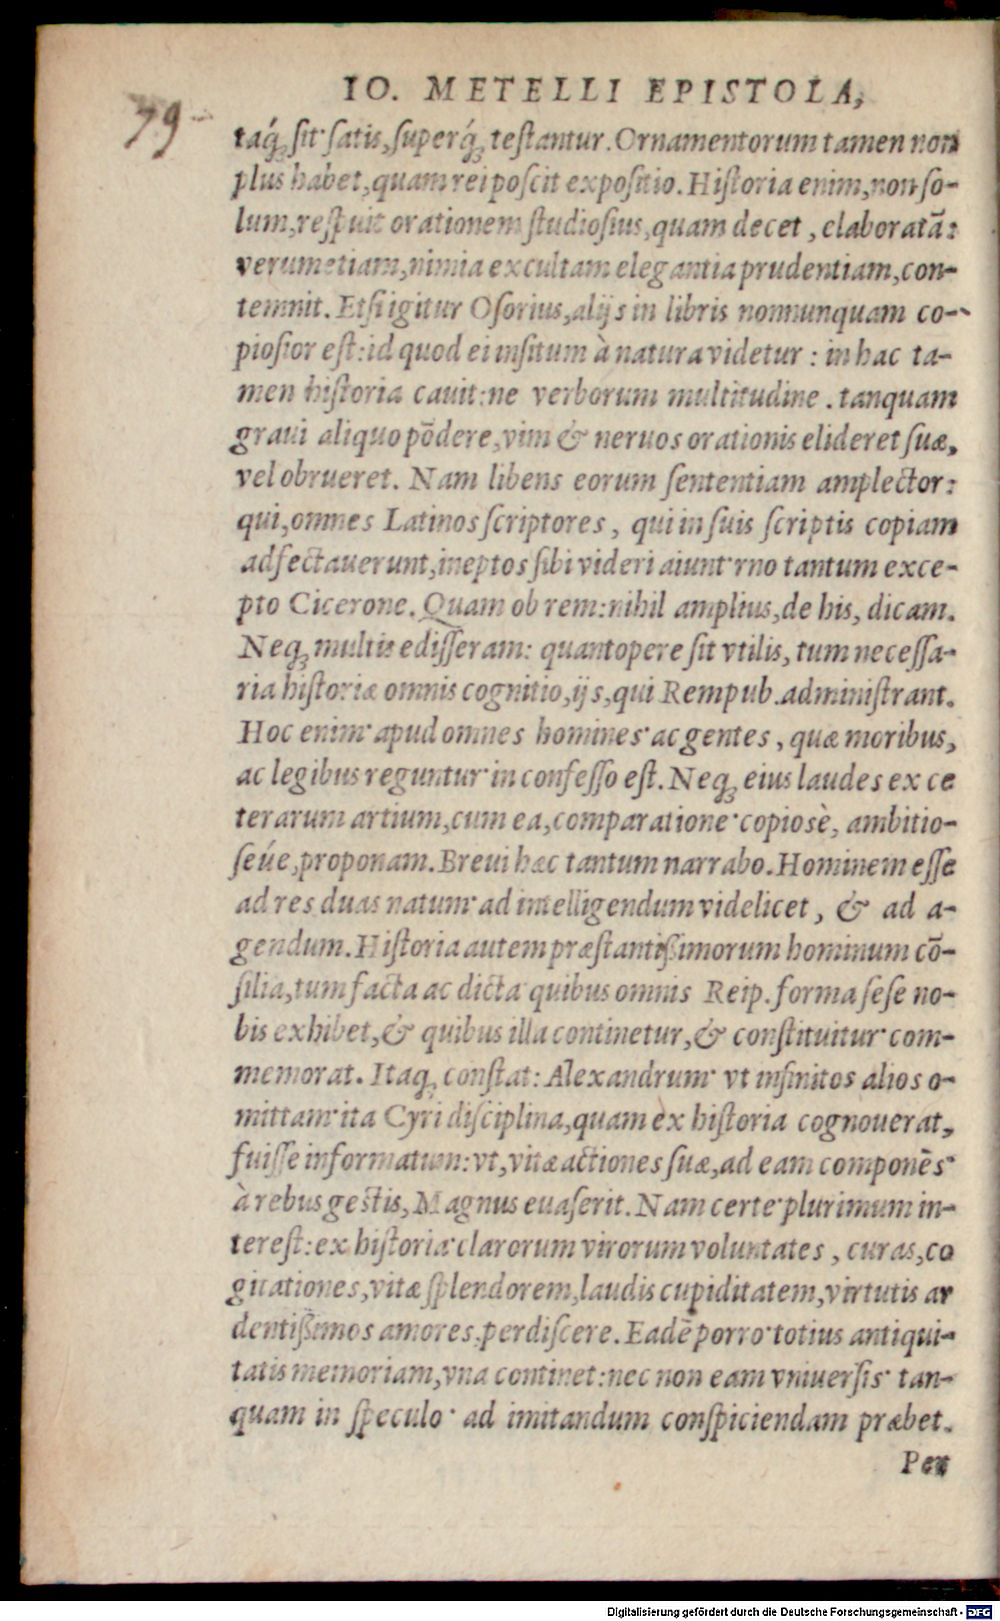 IO. METELLI EPISTOLA,
79
taq́ꝫ sit satis, superq́ꝫ testantur. Ornamentorum tamen non
plus habet, quam rei poscit expositio. Historia enim, non so-
lum, respuit orationem studiosius, quam decet, elaboratã:
verumetiam, nimia excultam elegantia prudentiam, con-
temnit. Etsi igitur Osorius, alijs in libris nonnunquam co-
piosior est: id quod ei insitum à natura videtur: in hac ta-
men historia cauit: ne verborum multitudine. tanquam
graui aliquo põdere, vim & neruos orationis elideret suæ,
vel obrueret. Nam libens eorum sententiam amplector:
qui, omnes Latinos scriptores, qui in suis scriptis copiam
adfectauerunt, ineptos sibi videri aiunt· vno tantum exce-
pto Cicerone. Quam ob rem: nihil amplius, de his, dicam.
Neqꝫ multis edisseram: quantopere sit vtilis, tum necessa-
ria historiæ omnis cognitio, ijs, qui Rempub. administrant.
Hoc enim· apud omnes homines· ac gentes, quæ moribus,
ac legibus reguntur· in confesso est. Neqꝫ eius laudes ex ce
terarum artium, cum ea, comparatione· copiosè, ambitio-
seúe, proponam. Breui hæc tantum narrabo. Hominem esse
ad res duas natum· ad intelligendum videlicet, & ad a-
gendum. Historia autem præstantißimorum hominum cõ-
silia, tum facta ac dicta· quibus omnis Reip. forma sese no-
bis exhibet, & quibus illa continetur, & constituitur· com-
memorat. Itaqꝫ constat: Alexandrum· vt infinitos alios o-
mittam· ita Cyri disciplina, quam ex historia cognouerat,
fuisse informatum: vt, vitæ actiones suæ, ad eam componẽs·
à rebus gestis, Magnus euaserit. Nam certe· plurimum in-
terest: ex historia· clarorum virorum voluntates, curas, co
gitationes, vitæ splendorem, laudis cupiditatem, virtutis ar
dentißimos amores. perdiscere. Eadẽ porro· totius antiqui-
tatis memoriam, vna continet: nec non eam vniuersis· tan-
quam in speculo· ad imitandum conspiciendam præbet.
Per
Digitalisierung gefördert durch die Deutsche Forschungsgemeinschaft - DFG